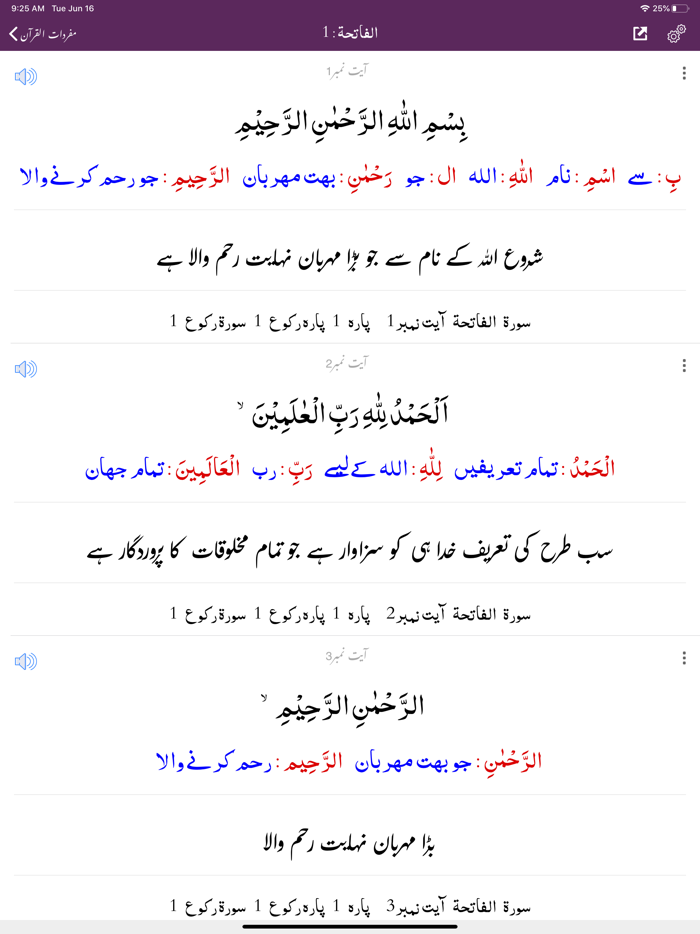 9:25 AM Tue Jun 16 25%
مفردات القرآن الفاتحة : 1
آیت نمبر1
بِسْمِ اللّٰهِ الرَّحْمٰنِ الرَّحِيْمِ
بِ : سے اسْمِ : نام اللّٰهِ : الله ال : جو رَحْمٰنِ : بهت مهربان الرَّحِيمِ : جو رحم کرنے والا
شروع اللہ کے نام سے جو بڑا مہربان نہایت رحم والا ہے
سورۃ الفاتحة آیت نمبر 1 پارہ 1 پارہ رکوع 1 سورۃ رکوع 1
آیت نمبر2
اَلْحَمْدُ لِلّٰهِ رَبِّ الْعٰلَمِيْنَ ۙ
الْحَمْدُ : تمام تعریفیں لِلّٰهِ : الله کے لیے رَبِّ : رب الْعَالَمِينَ : تمام جهان
سب طرح کی تعریف خدا ہی کو سزاوار ہے جو تمام مخلوقات کا پروردگار ہے
سورۃ الفاتحة آیت نمبر 2 پارہ 1 پارہ رکوع 1 سورۃ رکوع 1
آیت نمبر3
الرَّحْمٰنِ الرَّحِيْمِ ۙ
الرَّحْمٰنِ : جو بهت مهربان الرَّحِيم : رحم کرنے والا
بڑا مہربان نہایت رحم والا
سورۃ الفاتحة آیت نمبر 3 پارہ 1 پارہ رکوع 1 سورۃ رکوع 1